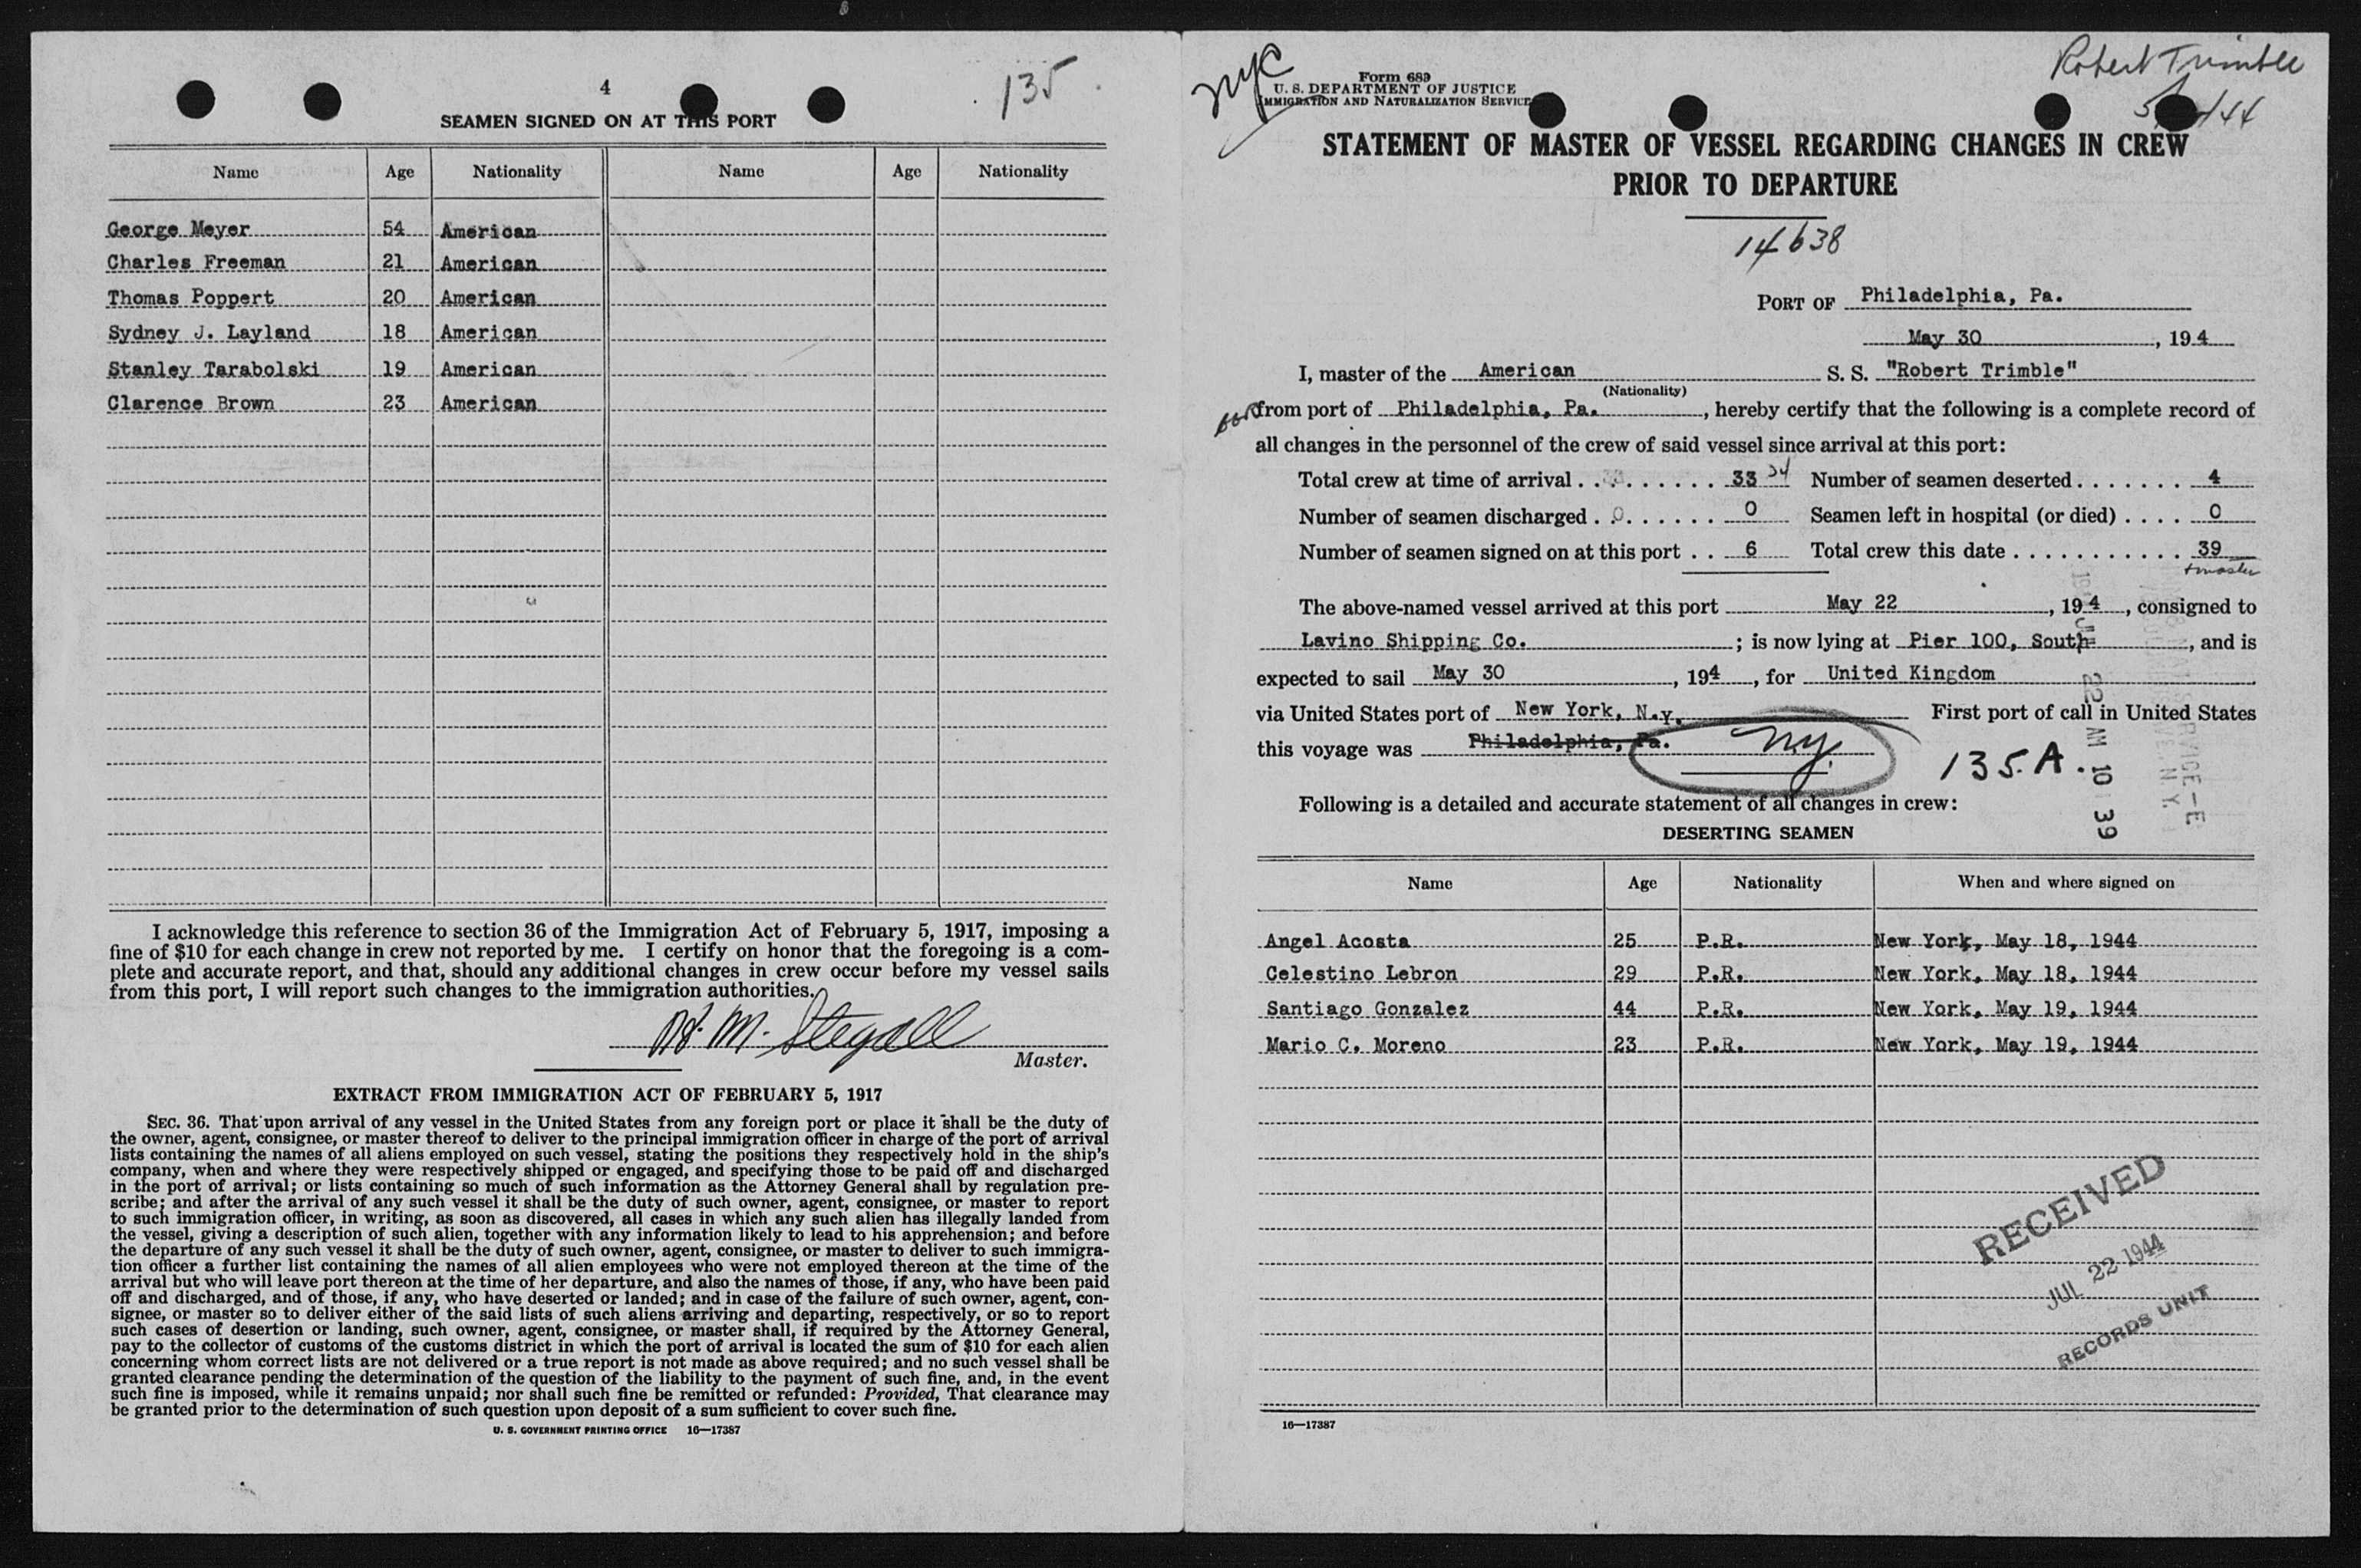 4
135
SEAMEN SIGNED ON AT THIS PORT
Name Age Nationality Name Age Nationality
George Meyer 54 American
Charles Freeman 21 American
Thomas Poppert 20 American
Sydney J. Layland 18 American
Stanley Tarabolski 19 American
Clarence Brown 23 American
I acknowledge this reference to section 36 of the Immigration Act of February 5, 1917, imposing a
fine of $10 for each change in crew not reported by me. I certify on honor that the foregoing is a com-
plete and accurate report, and that, should any additional changes in crew occur before my vessel sails
from this port, I will report such changes to the immigration authorities.
M. Stegall
Master.
EXTRACT FROM IMMIGRATION ACT OF FEBRUARY 5, 1917
SEC. 36. That upon arrival of any vessel in the United States from any foreign port or place it shall be the duty of
the owner, agent, consignee, or master thereof to deliver to the principal immigration officer in charge of the port of arrival
lists containing the names of all aliens employed on such vessel, stating the positions they respectively hold in the ship's
company, when and where they were respectively shipped or engaged, and specifying those to be paid off and discharged
in the port of arrival; or lists containing so much of such information as the Attorney General shall by regulation pre-
scribe; and after the arrival of any such vessel it shall be the duty of such owner, agent, consignee, or master to report
to such immigration officer, in writing, as soon as discovered, all cases in which any such alien has illegally landed from
the vessel, giving a description of such alien, together with any information likely to lead to his apprehension; and before
the departure of any such vessel it shall be the duty of such owner, agent, consignee, or master to deliver to such immigra-
tion officer a further list containing the names of all alien employees who were not employed thereon at the time of the
arrival but who will leave port thereon at the time of her departure, and also the names of those, if any, who have been paid
off and discharged, and of those, if any, who have deserted or landed; and in case of the failure of such owner, agent, con-
signee, or master so to deliver either of the said lists of such aliens arriving and departing, respectively, or so to report
such cases of desertion or landing, such owner, agent, consignee, or master shall, if required by the Attorney General,
pay to the collector of customs of the customs district in which the port of arrival is located the sum of $10 for each alien
concerning whom correct lists are not delivered or a true report is not made as above required; and no such vessel shall be
granted clearance pending the determination of the question of the liability to the payment of such fine, and, in the event
such fine is imposed, while it remains unpaid; nor shall such fine be remitted or refunded: Provided, That clearance may
be granted prior to the determination of such question upon deposit of a sum sufficient to cover such fine.
U. S. GOVERNMENT PRINTING OFFICE 16—17387
nyc
Robert Trimble
Form 689
U. S. DEPARTMENT OF JUSTICE
IMMIGRATION AND NATURALIZATION SERVICE
STATEMENT OF MASTER OF VESSEL REGARDING CHANGES IN CREW
PRIOR TO DEPARTURE
14638
PORT OF Philadelphia, Pa.
May 30, 194
I, master of the American S. S. "Robert Trimble"
(Nationality)
from port of Philadelphia, Pa., hereby certify that the following is a complete record of
all changes in the personnel of the crew of said vessel since arrival at this port:
Total crew at time of arrival 33 34 Number of seamen deserted 4
Number of seamen discharged 0 Seamen left in hospital (or died) 0
Number of seamen signed on at this port 6 Total crew this date 39
+master
The above-named vessel arrived at this port May 22, 194, consigned to
Lavino Shipping Co.; is now lying at Pier 100, South, and is
expected to sail May 30, 194, for United Kingdom
via United States port of New York, N.Y. First port of call in United States
this voyage was Philadelphia, Pa. NY.
135.A.
22 AM 10 39
Following is a detailed and accurate statement of all changes in crew:
DESERTING SEAMEN
Name Age Nationality When and where signed on
Angel Acosta 25 P.R. New York, May 18, 1944
Celestino Lebron 29 P.R. New York, May 18, 1944
Santiago Gonzalez 44 P.R. New York, May 19, 1944
Mario C. Moreno 23 P.R. New York, May 19, 1944
RECEIVED
JUL 22 1944
RECORDS UNIT
16—17387